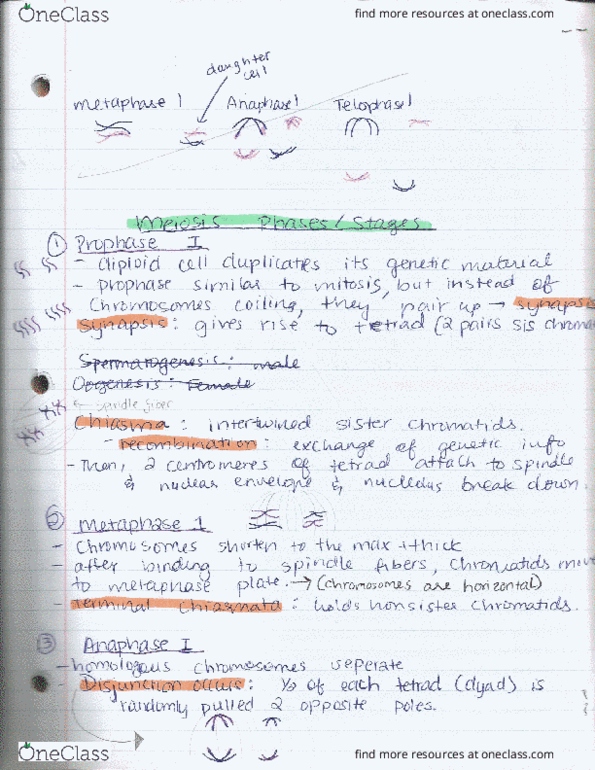 OneClass
find more resources at oneclass.com
daughter
cell
metaphase 1 Anaphase 1 Telophase 1
Meiosis Phases/Stages
① Prophase I
- diploid cell duplicates its genetic material
- prophase similar to mitosis, but instead of
chromosomes coiling, they pair up → synapsis
synapsis: gives rise to tetrad (2 pairs sis chroma
Spermatogenesis: male
Oogenesis: Female
← spindle fiber
Chiasma: intertwined sister chromatids.
- recombination: exchange of genetic info
- Then, 2 centromeres of tetrad attach to spindle
& nuclear envelope & nucleolus break down.
② Metaphase 1
- Chromosomes shorten to the max + thick
- after binding to spindle fibers, Chromatids move
to metaphase plate. → (chromosomes are horizontal)
- Terminal Chiasmata: holds nonsister chromatids.
③ Anaphase I
- homologous chromosomes seperate
- Disjunction occurs: ½ of each tetrad (dyad) is
randomly pulled 2 opposite poles.
OneClass
find more resources at oneclass.com